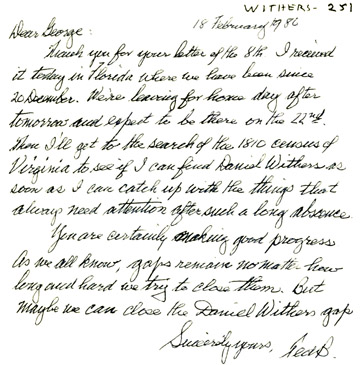 WITHERS - 251
18 February 1986
Dear George:
Thank you for your letter of the 8th. I received
it today in Florida where we have been since
20 December. We're leaving for home day after
tomorrow and expect to be there on the 22nd.
Then I'll get to the search of the 1810 census of
Virginia to see if I can find Daniel Withers as
soon as I can catch up with the things that
always need attention after such a long absence.
You are certainly making good progress
As we all know, gaps remain no matter how
long and hard we try to close them. But
maybe we can close the Daniel Withers gap
Sincerely yours, Ted B.